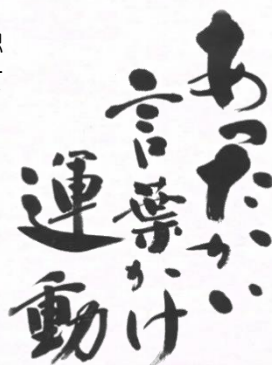 あったかい
言葉かけ
運動